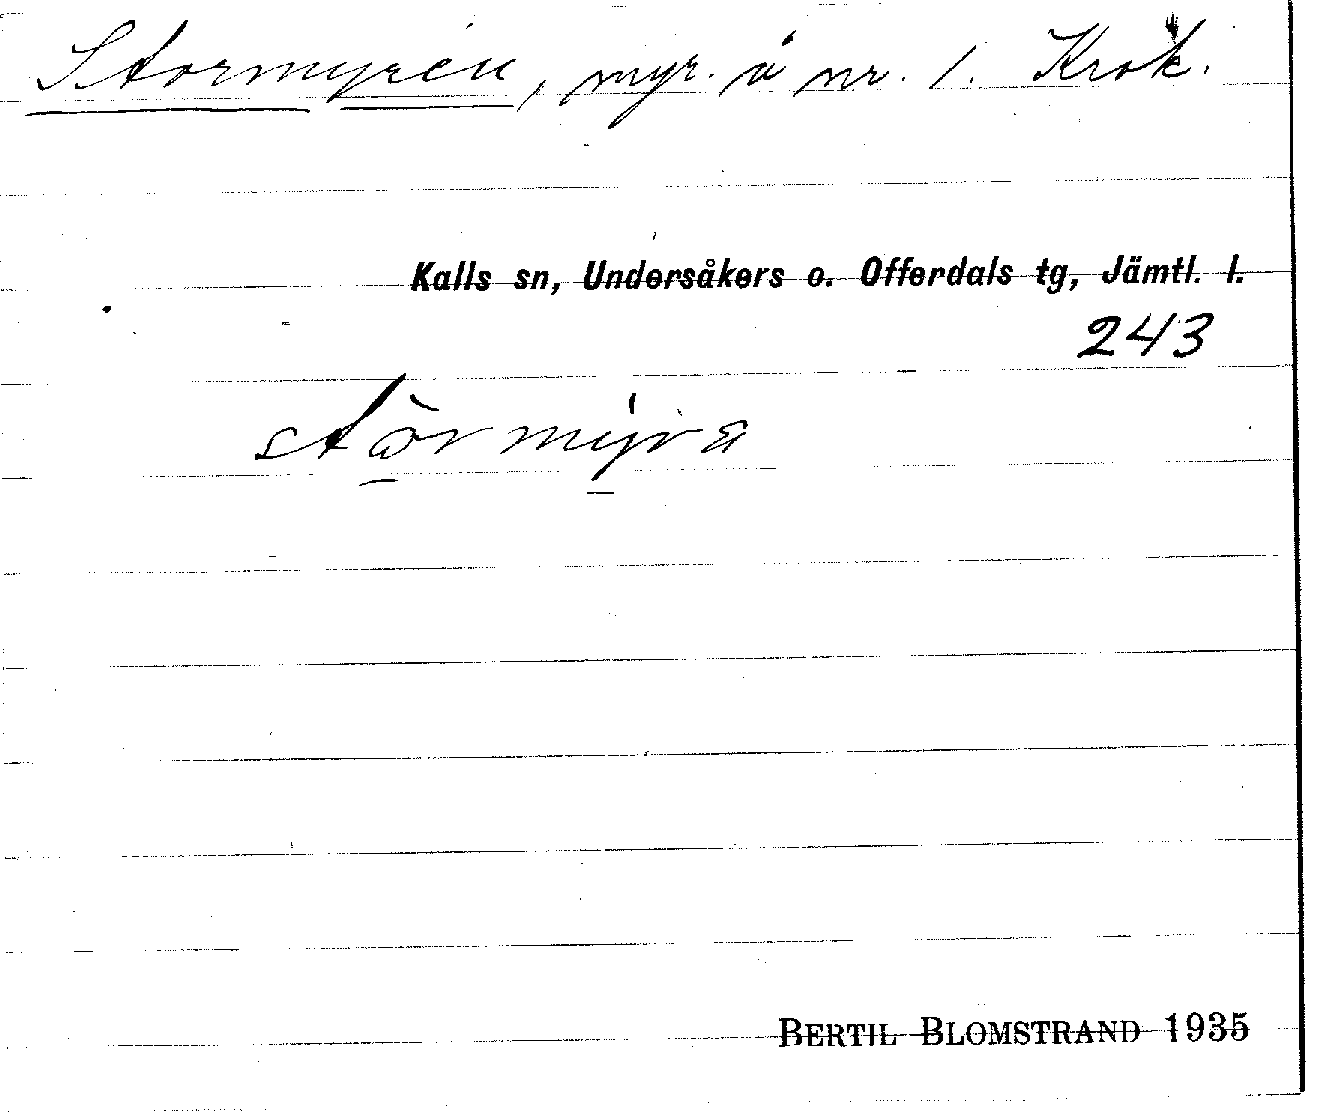 Stormyren, myr. å nr. 1. Krok.
Kalls sn, Undersåkers o. Offerdals tg, Jämtl. l.
243
BERTIL BLOMSTRAND 1935